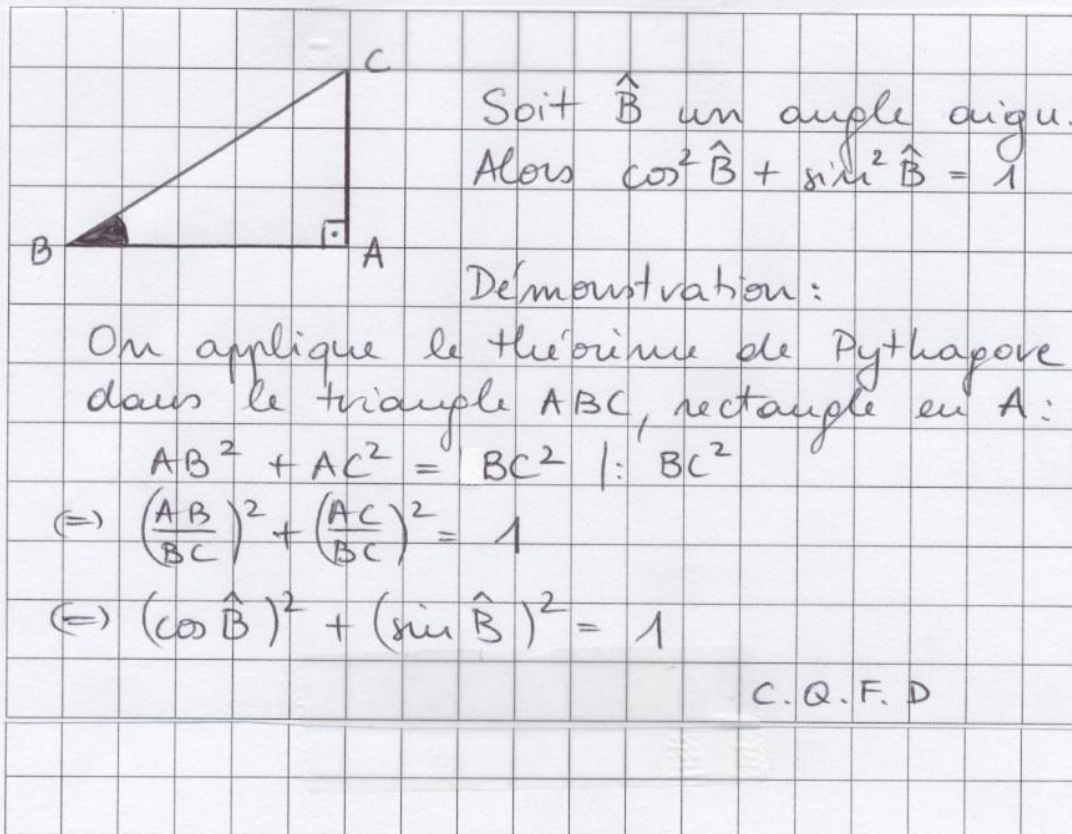 C
Soit B̂ un angle aigu.
Alors cos² B̂ + sin² B̂ = 1
B
A
Démonstration:
On applique le théorème de Pythagore
dans le triangle ABC, rectangle en A:
AB² + AC² = BC² |: BC²
(=) (AB/BC)² + (AC/BC)² = 1
(=) (cos B̂)² + (sin B̂)² = 1
C.Q.F.D